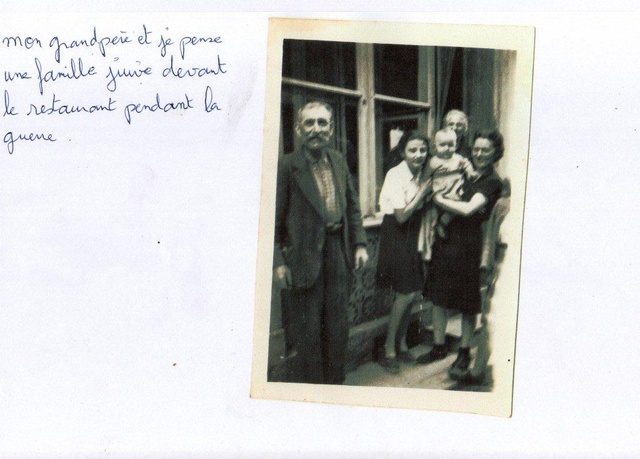 mon grandpère et je pense
une famille juive devant
le restaurant pendant la
guerre.